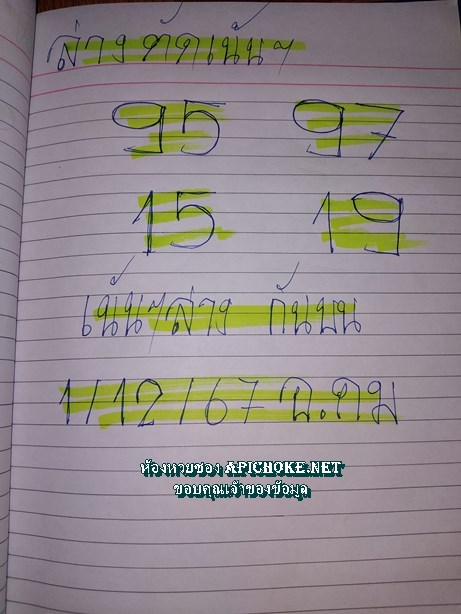 ล่าง คัดเน้นๆ
95 97
15 19
เน้นๆล่าง กันบน
1/12/67 อ.คม
ห้องหวยซอง APICHOKE.NET
ขอบคุณเจ้าของข้อมูล